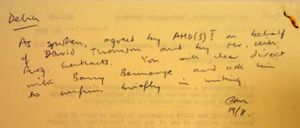 Debra
As spoken, agreed by AHD(S)I on behalf
of David Thomson and by Mr.
Prog. Contracts. You will clear direct
with Barry Bermange and ask him
to confirm briefly in writing
19/8.